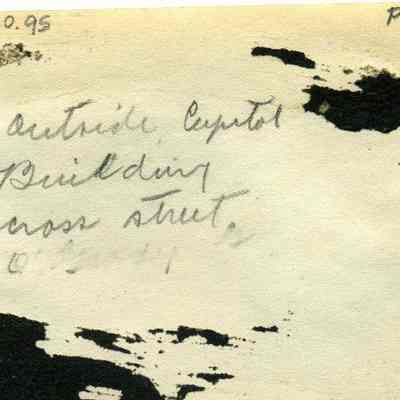 0.95
P
Outside Capitol
Building
cross street.